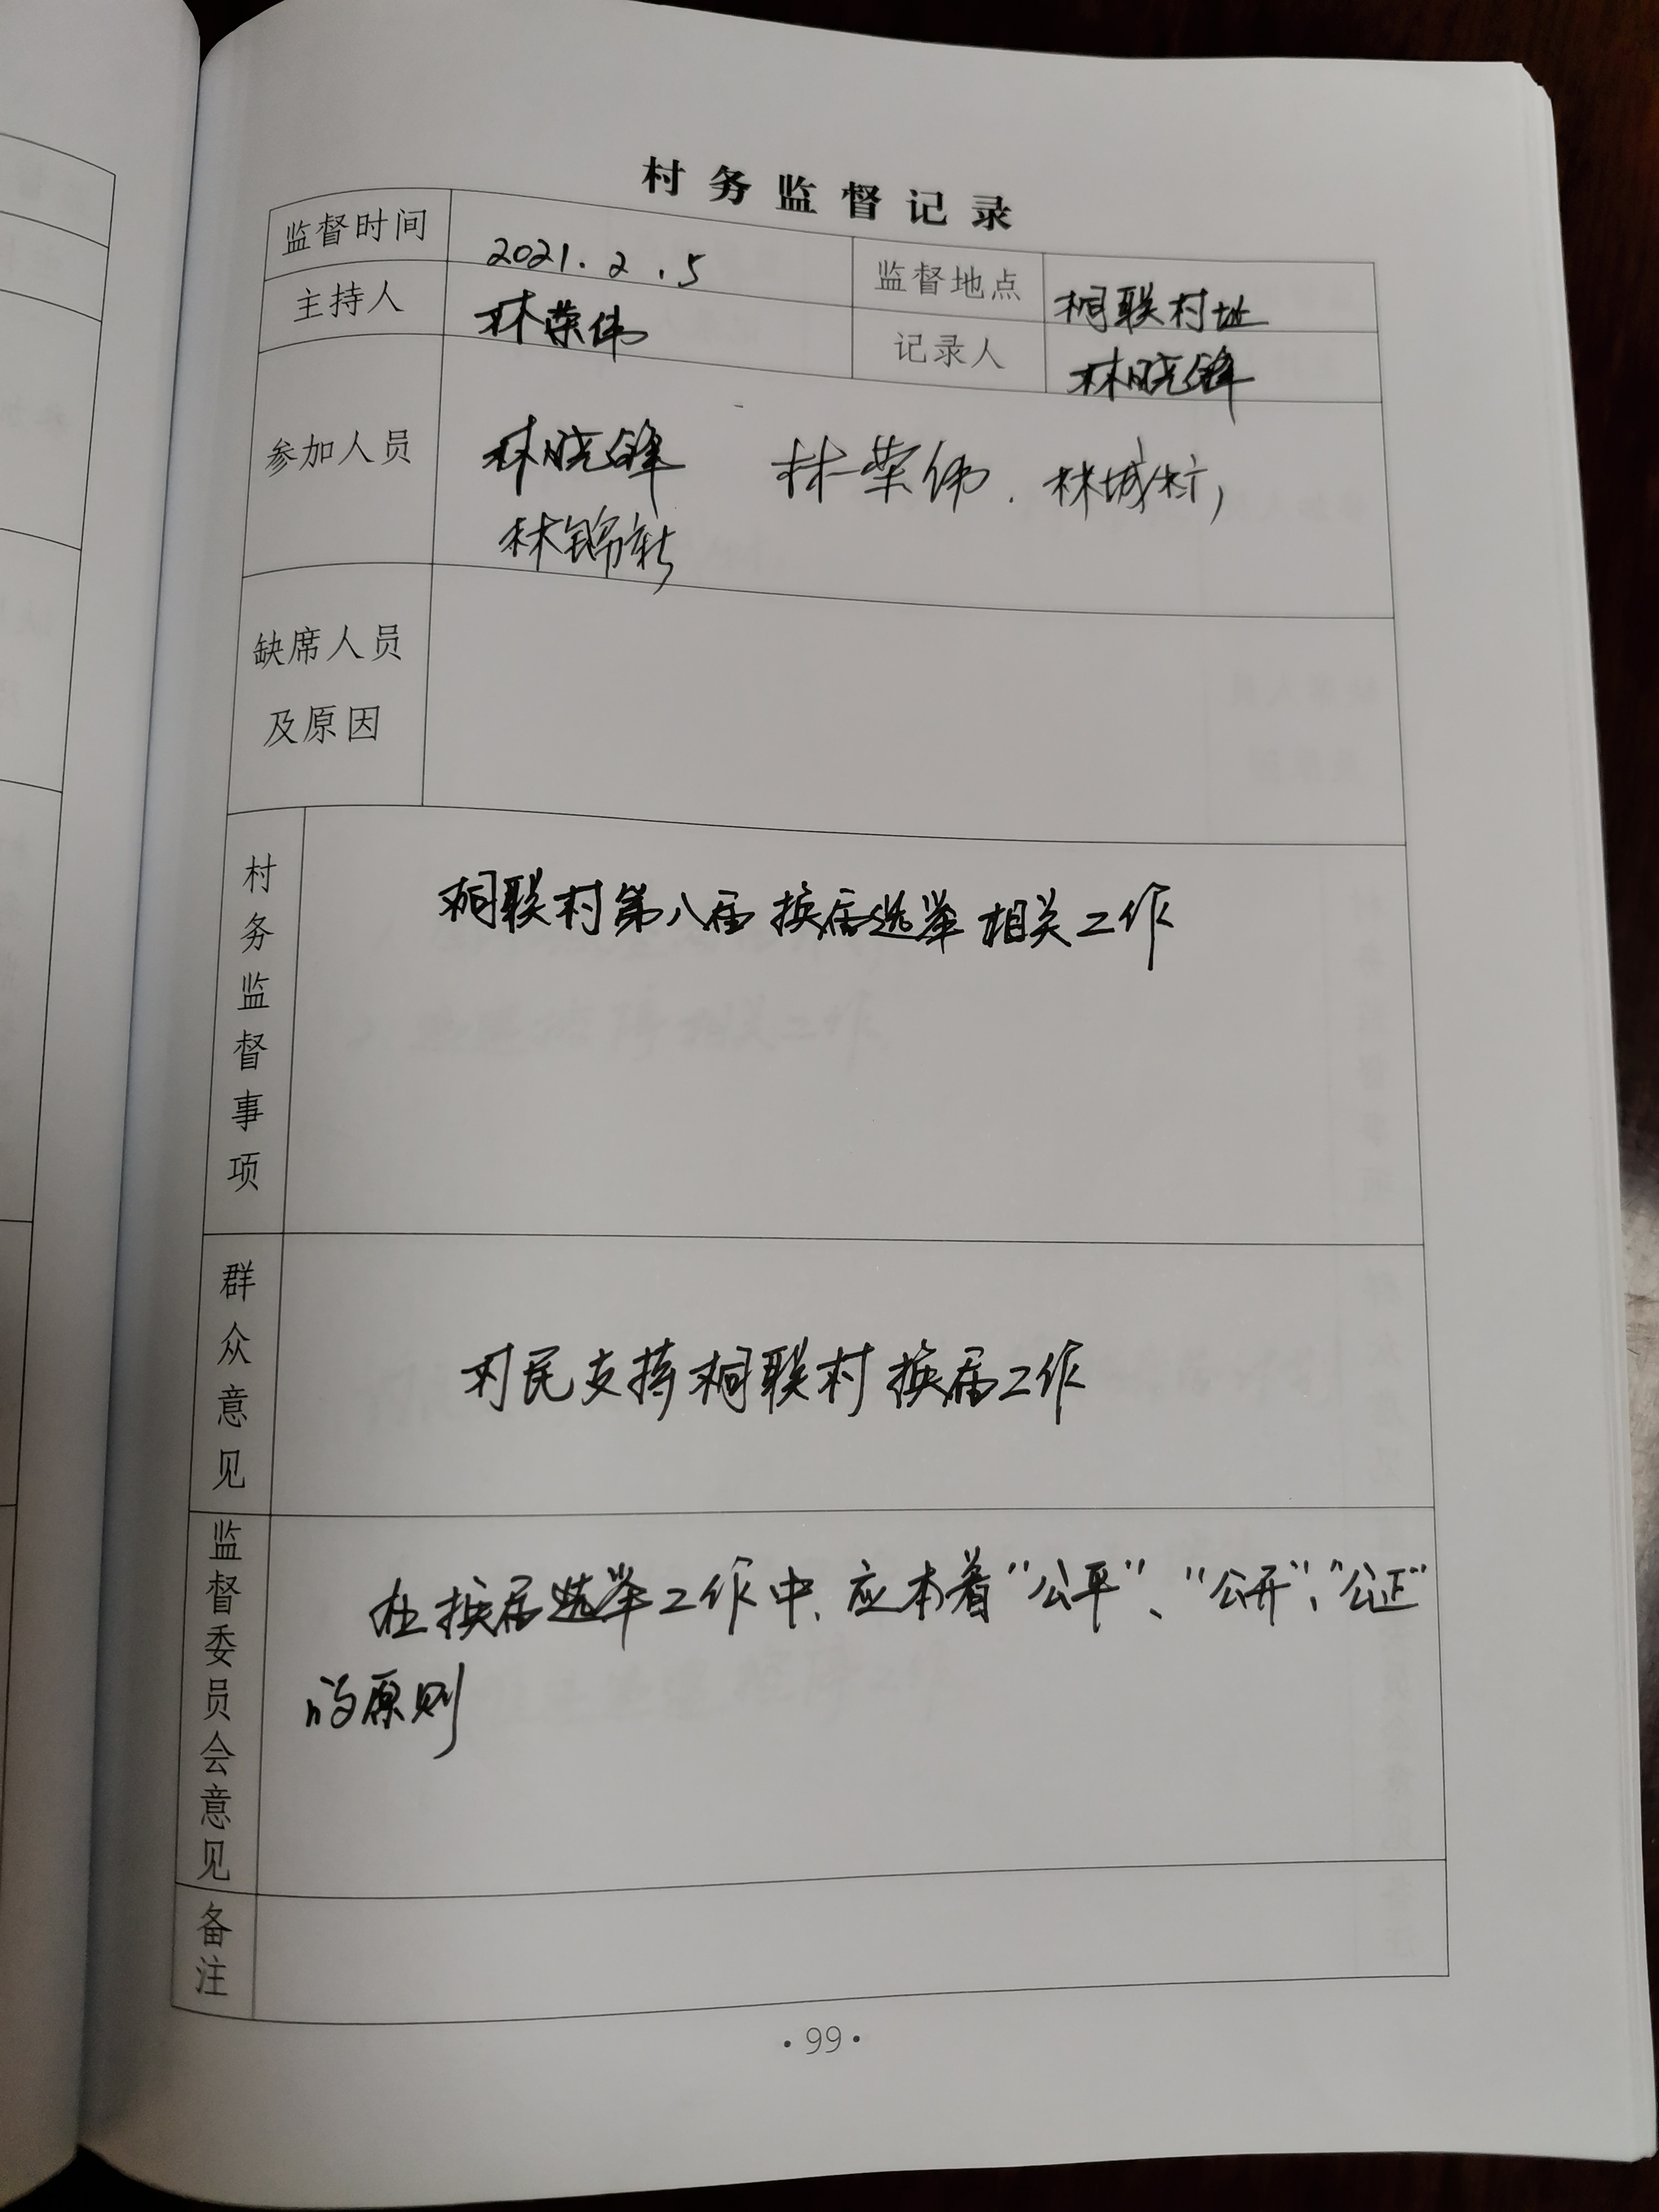 村务监督记录
监督时间 2021.2.5 监督地点 桐联村址
主持人 林荣伟 记录人 林晓锋
参加人员 林晓锋 林荣伟. 林城树,
林锦新
缺席人员
及原因
村务监督事项
桐联村第八届换届选举相关工作
群众意见
村民支持桐联村换届工作
监督委员会意见
在换届选举工作中、应本着"公平"、"公开"、"公正"
的原则
备注
·99·